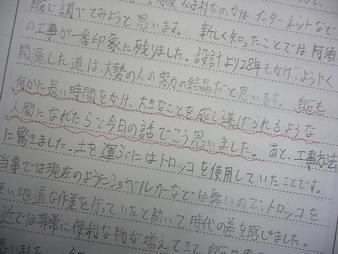 で調べてみようと思います。 新しく知ったことでは阿須
の工事が一番印象に残りました。設計より28年もかけ、ようやく
開通した道は大勢の人の努力の結晶だと思います。 自分も
何かに長い時間をかけ、大きなことを成し遂げられるような
人間になれたらと今日の話でそう思いました。あと、工事方法
に驚きました。土を運ぶにはトロッコを使用していたことです。
当事では現在のようにショベルカーなどは無いので、トロッコを
地道な作業を行っていたと聞いて、時代の差を感じました。
では非常に便利な物が増えてきて、